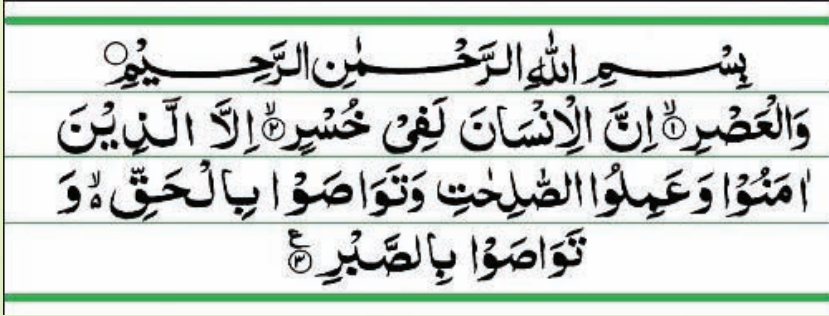 بِسْــــمِ اللهِ الرَّحْــــمٰنِ الرَّحِــــيْمِ ○
وَالْعَصْرِ ۙ﴿۱﴾ اِنَّ الْاِنْسَانَ لَفِیْ خُسْرٍ ۙ﴿۲﴾ اِلَّا الَّذِیْنَ
اٰمَنُوْا وَعَمِلُوا الصّٰلِحٰتِ وَتَوَاصَوْا بِالْحَقِّ ۬ۙ وَ
تَوَاصَوْا بِالصَّبْرِ ﴿۳﴾ ع